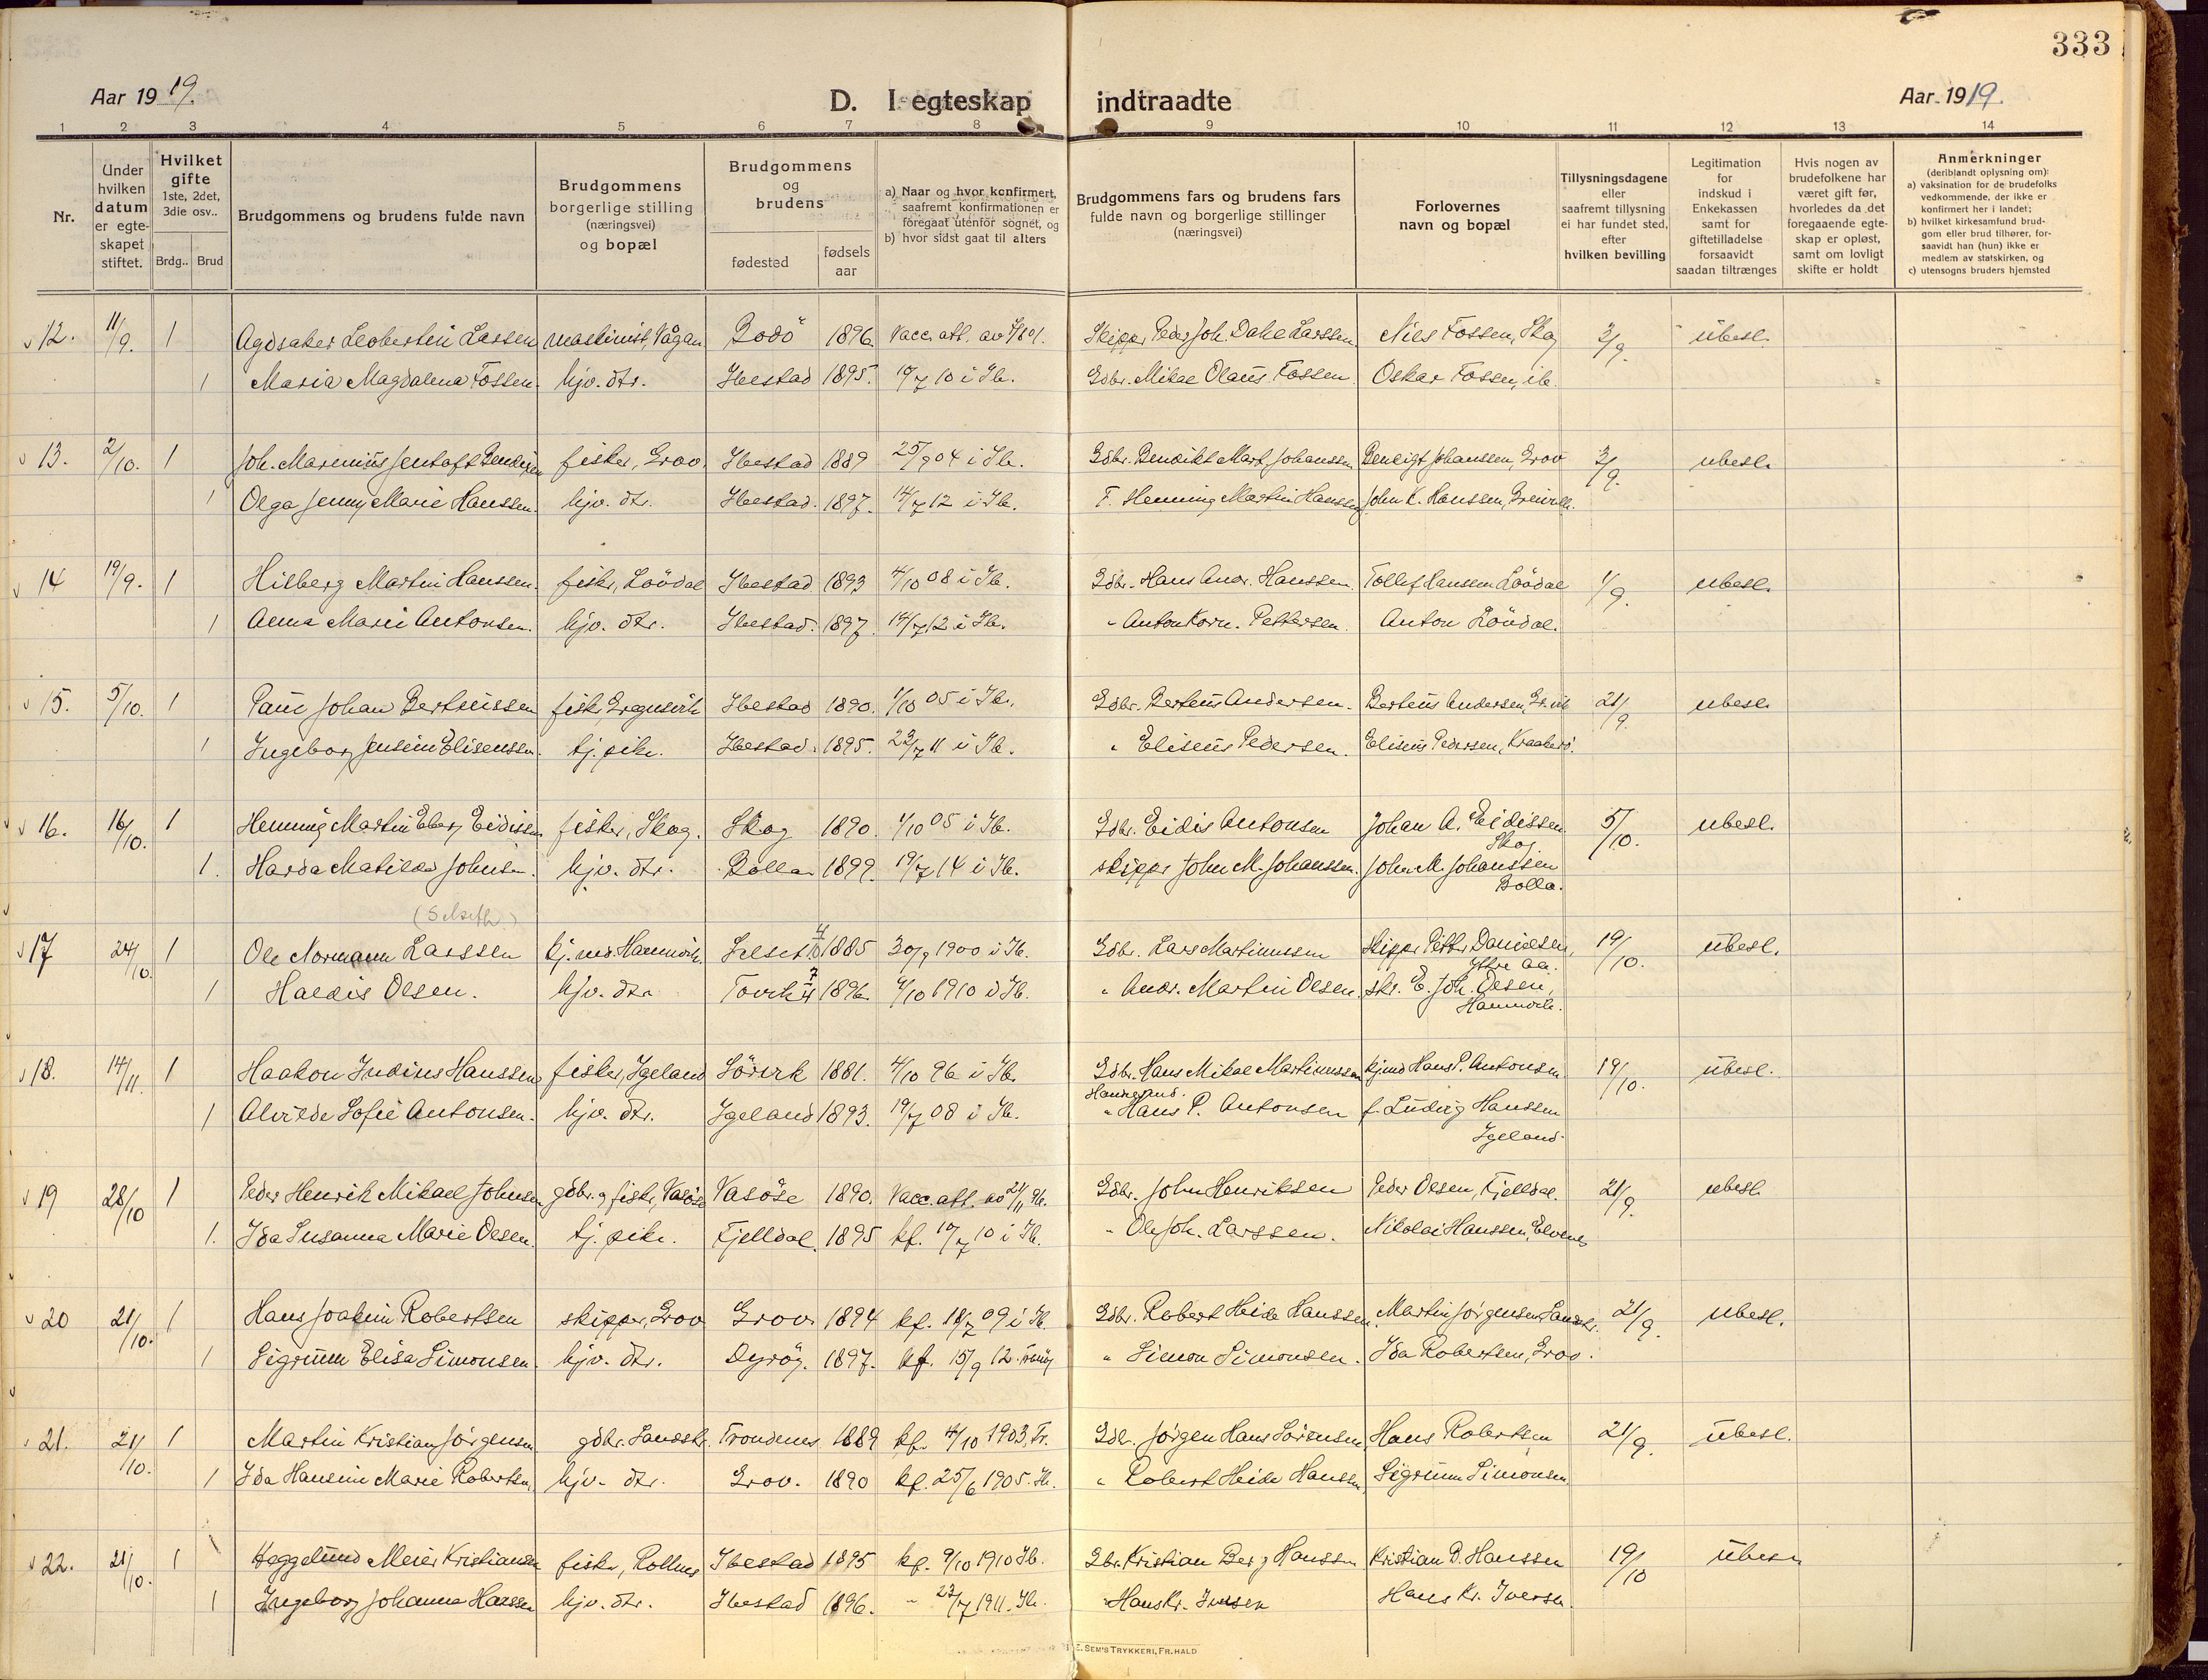 333
Aar 1919.
D. I egteskap indtraadte
Aar 1919.
1 2 3 4 5 6 7 8 9 10 11 12 13 14
Nr.
Under hvilken datum er egte-skapet stiftet.
Hvilket gifte 1ste, 2det, 3die osv..
Brdg.. Brud
Brudgommens og brudens fulde navn
Brudgommens borgerlige stilling (næringsvei) og bopæl
Brudgommens og brudens
fødested
fødsels aar
a) Naar og hvor konfirmert, saafremt konfirmationen er foregaat utenfor sognet, og
b) hvor sidst gaat til alters
Brudgommens fars og brudens fars fulde navn og borgerlige stillinger (næringsvei)
Forlovernes navn og bopæl
Tillysningsdagene eller saafremt tillysning ei har fundet sted, efter hvilken bevilling
Legitimation for indskud i Enkekassen samt for giftetilladelse forsaavidt saadan tiltrænges
Hvis nogen av brudefolkene har været gift før, hvorledes da det foregaaende egte-skap er opløst, samt om lovligt skifte er holdt
Anmerkninger (deriblandt oplysning om):
a) vaksination for de brudefolks vedkommende, der ikke er konfirmert her i landet;
b) hvilket kirkesamfund brud-gom eller brud tilhører, for-saavidt han (hun) ikke er medlem av statskirken, og
c) utensogns bruders hjemsted
12. 11/9. 1 Larsen maskinist, Vågan Bodö 1896. Vacc. att. Skipper Peder Joh. Dahl Larssen Nils Fossen, Skog 3/9. ubesl.
1 Maria Magdalena Fossen. hjv. dtr. Ibestad 1895. 10/7 10 i Ib. Gdbr. Mikal Olaus Fossen Oskar Fossen, ib.
13. 2/10. 1 Joh. Marenius Jentoft Bendigsen fisker, Grov. Ibestad 1889 25/9 04 i Ib. Gdbr. Bendikt Mart. Johanssen Bendigt Johanssen, Grov 3/9. ubesl.
1 Olga Jenny Marie Hanssen. hjv. dtr. Ibestad. 1897. 14/7 12 i Ib. F. Henning Martin Hanssen John K. Hanssen,
14 19/9. 1 Hilberg Martin Hanssen. fisker, Løvdal Ibestad 1893 4/10 08 i Ib. Gdbr. Hans Andr. Hanssen. Tollef Hanssen Løvdal 1/9. ubesl.
1 Anna Marie Antonsen. hjv. dtr. Ibestad. 1897. 14/7 12 i Ib. " Anton Korn. Pettersen. Anton Lövdal.
15. 5/10. 1 Paul Johan Berteussen fisker, Ibestad 1890. 1/10 05 i Ib. Gdbr. Berteus Andersen. Berteus Andersen, 21/9. ubesl.
1 Ingeborg Jensine Eliseussen. tj. pike. Ibestad. 1895. 23/7 11 i Ib. " Eliseus Pedersen. Eliseus Pedersen, Kraakerö.
16. 16/10. 1 Henning Martin Eberg Eidissen fisker, Skog. Skog 1890. 1/10 05 i Ib. Gdbr. Eidis Antonsen Johan A. Eidissen Skog 5/10. ubesl.
1. Harda Matilda Johnsen. hjv. dtr. Bolla 1899. 19/7 14 i Ib. skipper John M. Johanssen. John M. Johanssen Bolla.
(Selseth)
17 24/10. 1 Ole Normann Larssen hj. ved. Hamnvik. Selset 4/10 1885 30/9 1900 i Ib. Gdbr. Lars Martinussen skipper Petter Danielsen, Ytre Aa. 19/10. ubesl.
1 Haldis Olsen. hjv. dtr. 7/4 1896 4/10 1910 i Ib. " Andr. Martin Olsen. skr. E. Joh. Olsen, Hamnvik.
18. 14/11. 1 Haakon Indius Hanssen fisker, Igeland Sörvik 1881. 4/10 96 i Ib. Gdbr. Hans Mikal Martinussen kjmd Hans P. Antonsen 19/10. ubesl.
1 Alvilde Sofie Antonsen. hjv. dtr. Igeland 1893. 19/7 08 i Ib. Handelsmd. " Hans P. Antonsen f. Ludvig Hanssen Igeland
19 28/10 1 Peder Henrik Mikael Johnsen gdbr. og fisker, Vasöse Vasöse 1890. Vacc. att. av 21/11 Gdbr. John Henriksen Peder Olsen, Fjelldal. 21/9. ubesl.
1. Ida Susanna Marie Olsen. tj. pike. Fjelldal. 1895 kf. 10/7 10 i Ib. " Ole Joh. Larssen. Nikolai Hanssen, Elvenes
20 21/10. 1 Hans Joakim Robertsen skipper, Grov Grov 1894 kf. 18/7 09 i Ib. Gdbr. Robert Heide Hanssen. Martin Jørgensen, 21/9. ubesl.
1 Sigrunn Elisa Simonsen. hjv. dtr. Dyröy. 1897. kf. 15/9 12. " Simon Simonsen. Ida Robertsen, Grov.
21. 21/10. 1 Martin Kristian Jörgensen gdbr. Sandstr. Trondenes 1889 kf. 4/10 1903, Tr. Gdbr. Jørgen Hans Sörensen, Hans Robertsen 21/9. ubesl.
1 Ida Hansine Marie Robertsen, hjv. dtr. Grov. 1890 kf. 25/6 1905. Ib. " Robert Heide Hanssen, Sigrunn Simonsen
22. 21/10. 1 Heggelund Meier Kristiansen fisker, Rollnes Ibestad 1895 kf. 9/10 1910 Ib. Gbr. Kristian Berg Hanssen Kristian B. Hanssen 19/10 ubesl.
1 Ingeborg Johanna Hanssen hjv. dtr. Ibestad 1896. " 23/7 1911. Ib. " Hans Kr. Iversen Hans Kr. Iversen.
E. SEM'S TRYKKERI, FR.HALD